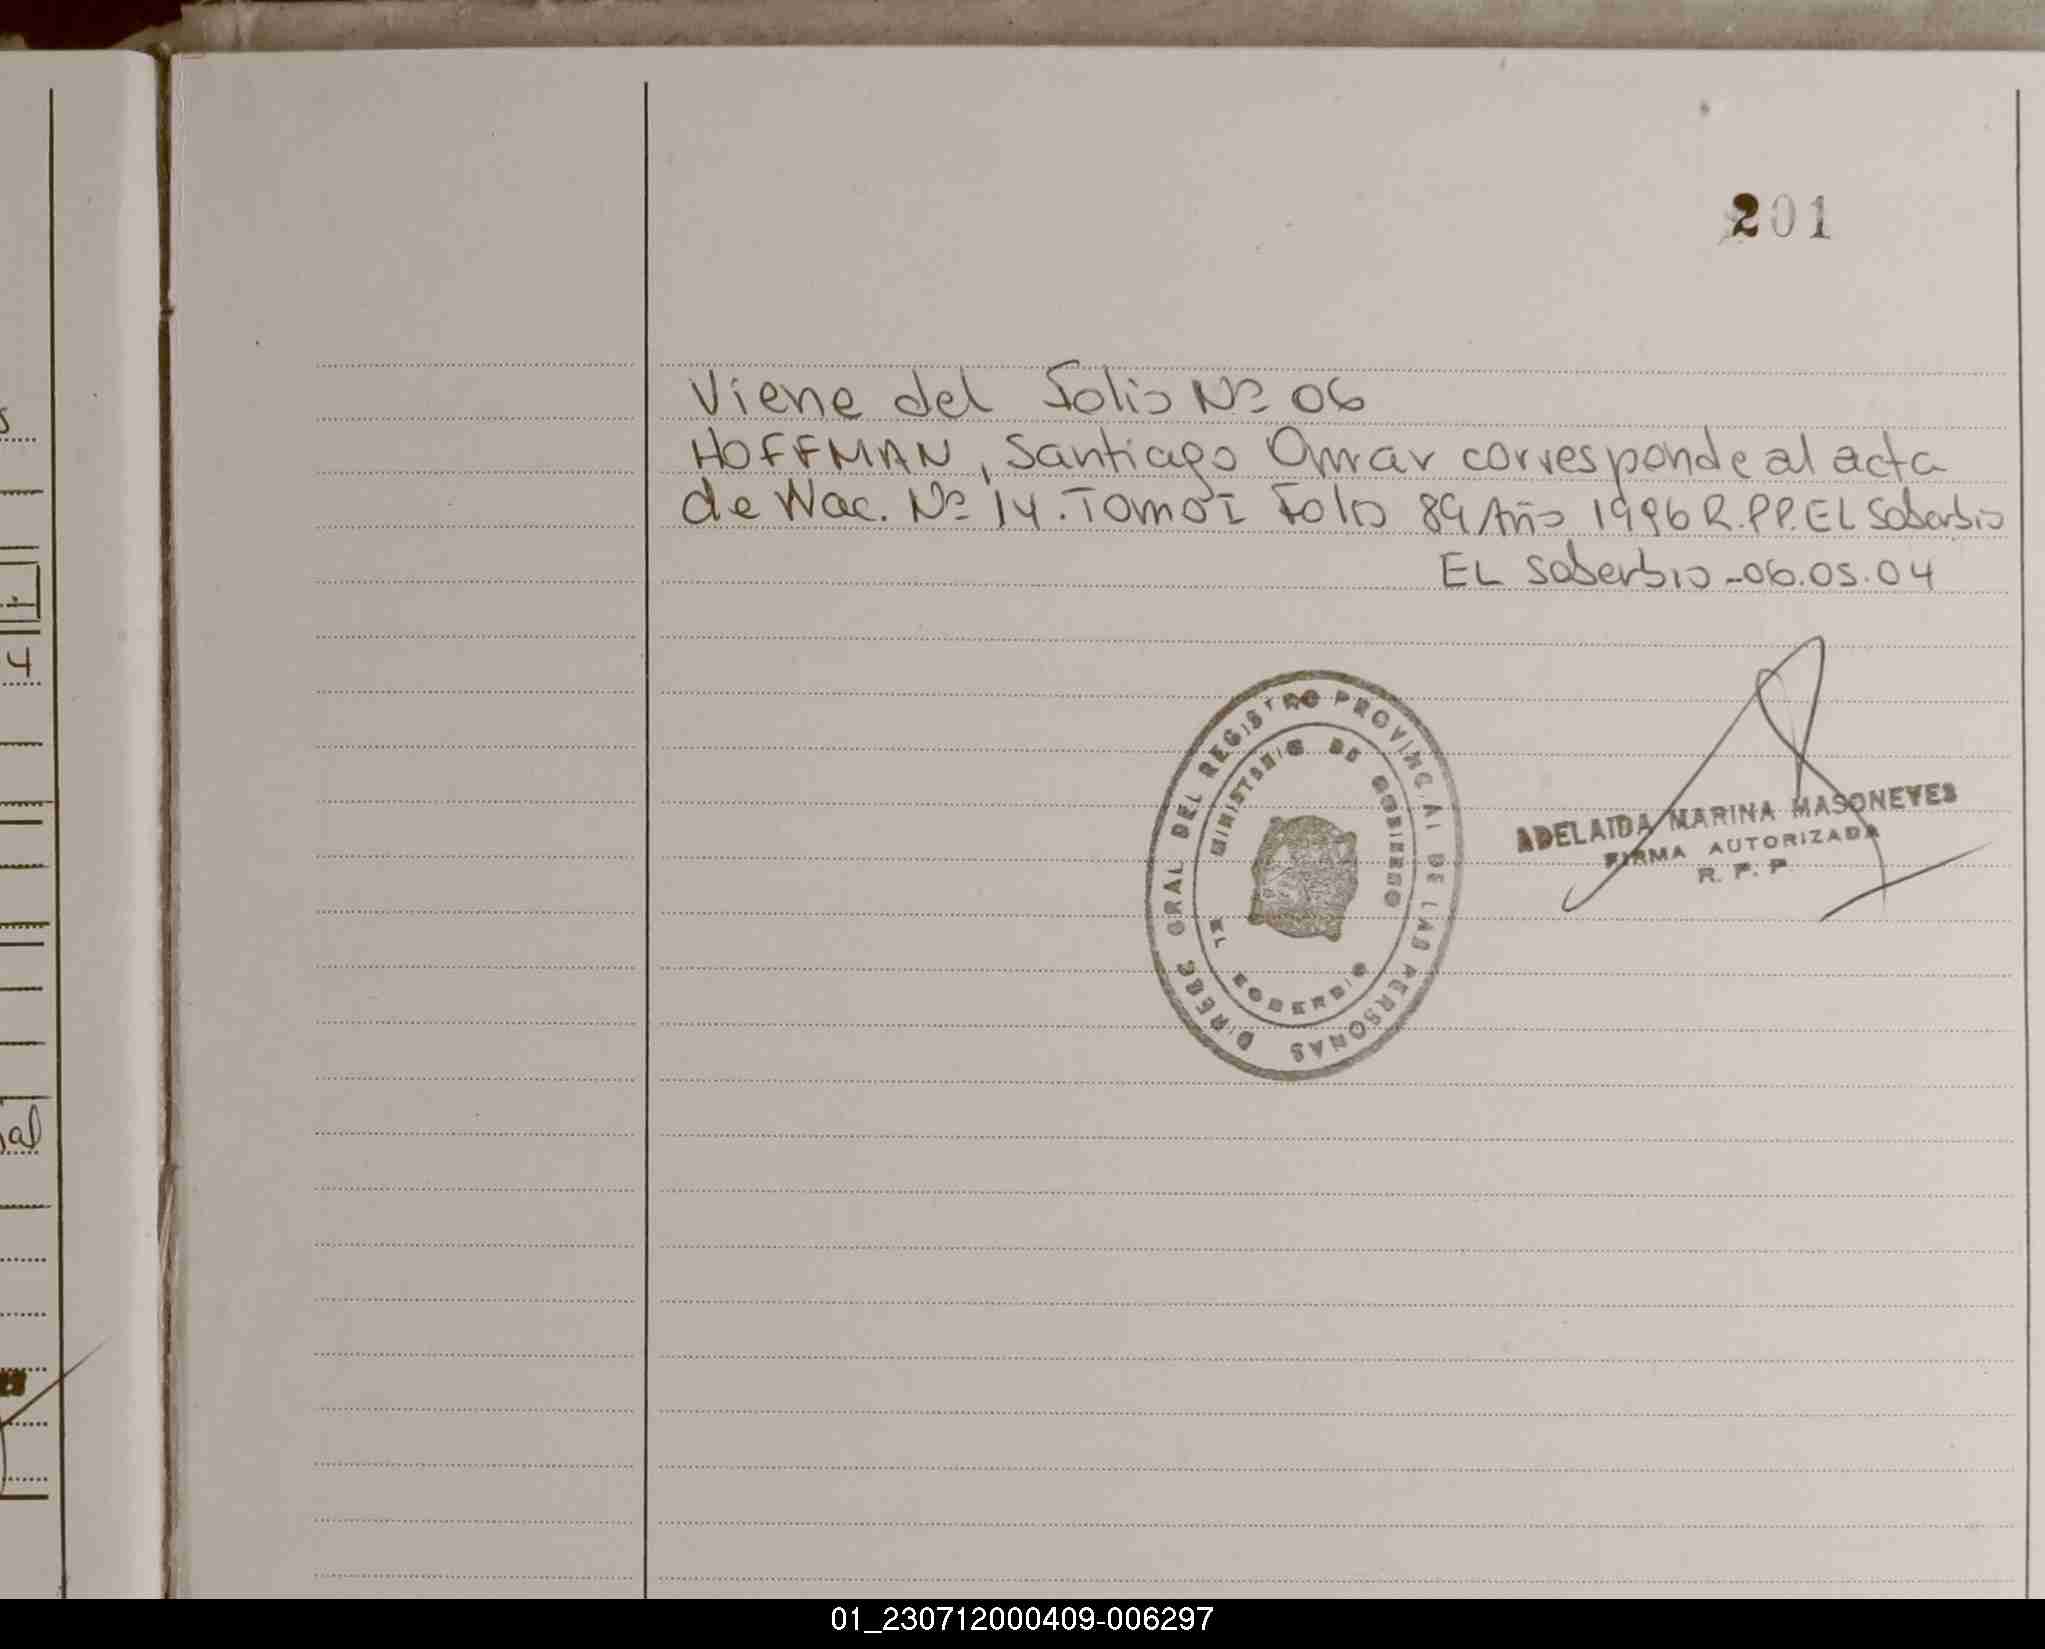 201
Viene del Folio Nº 06
HOFFMAN, Santiago Omar corresponde al acta
de Nac. Nº 14. Tomo I Folio 89 Año 1996 R.P.P. EL Soberbio
EL Soberbio - 06.05.04
DIREC GRAL DEL REGISTRO PROVINCIAL DE LAS PERSONAS
MINISTERIO DE GOBIERNO
EL SOBERBIO
ADELAIDA MARINA MASONEVES
FIRMA AUTORIZADA
R. P. P
4
al
01_230712000409-006297